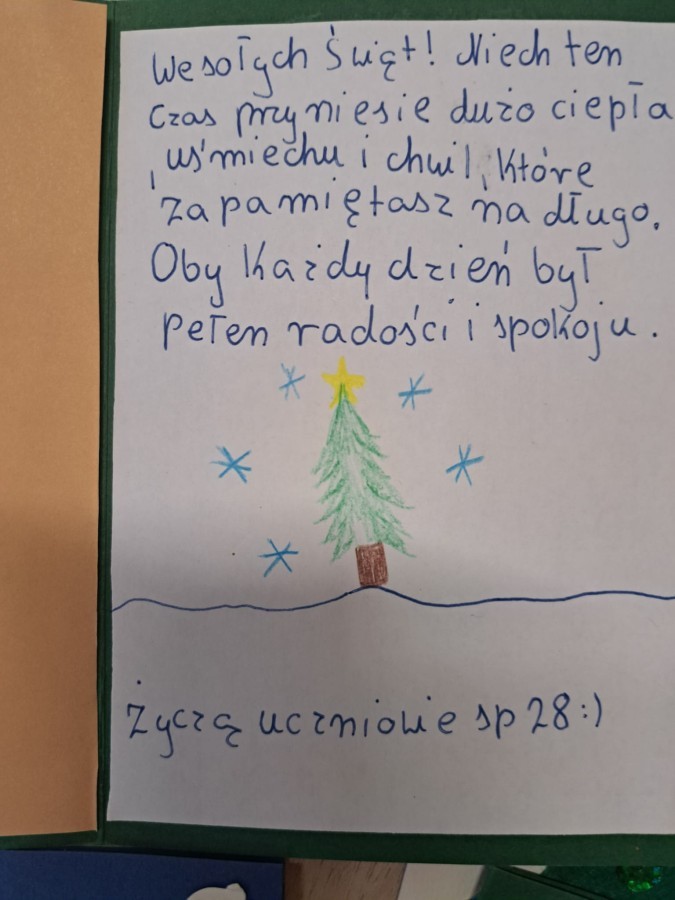 Wesołych Świąt! Niech ten
czas przyniesie dużo ciepła
, uśmiechu i chwil, które
zapamiętasz na długo.
Oby każdy dzień był
pełen radości i spokoju.
Życzą uczniowie sp 28:)